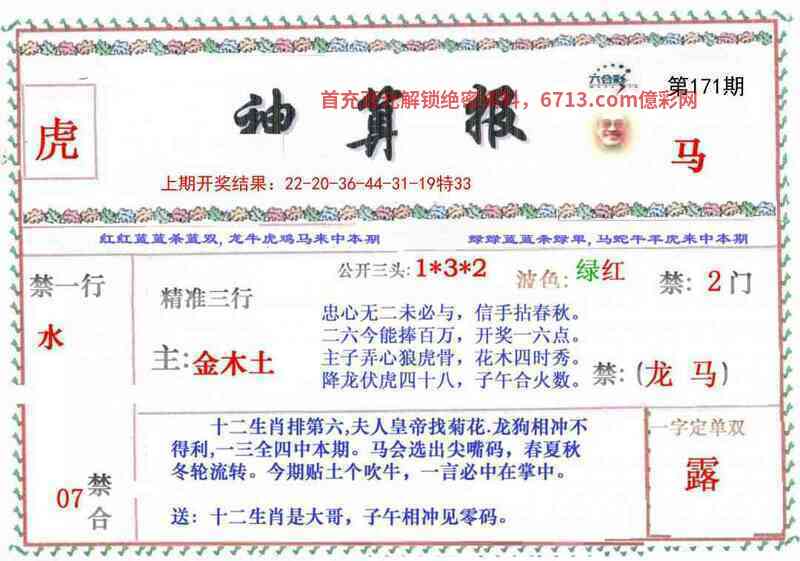 六合彩
第171期
神算报
首充
解锁绝密
，6713.com億彩网
虎
马
上期开奖结果：22-20-36-44-31-19特33
红红蓝蓝条蓝双,龙牛虎鸡马来中本期
绿绿蓝蓝条绿单,马蛇牛羊虎来中本期
禁一行
水
精准三行
主:金木土
公开三头:1*3*2
波色:绿红
禁:2门
忠心无二未必与，信手拈春秋。
二六今能捧百万，开奖一六点。
主子弄心狼虎骨，花木四时秀。
降龙伏虎四十八，子午合火数。
禁:(龙 马)
07禁合
十二生肖排第六,夫人皇帝找菊花.龙狗相冲不
得利,一三全四中本期。马会选出尖嘴码，春夏秋
冬轮流转。今期贴土个吹牛，一言必中在掌中。
送：十二生肖是大哥，子午相冲见零码。
一字定单双
露